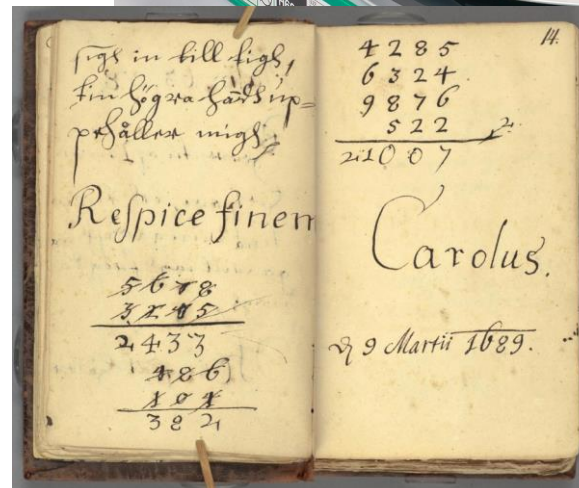 sigh in till tigh,
tin högra up=
pehåller migh.
Respice finem
5678
3245
2433
486
104
382
14.
4285
6324
9876
522
21007
Carolus.
9 Martii 1689.